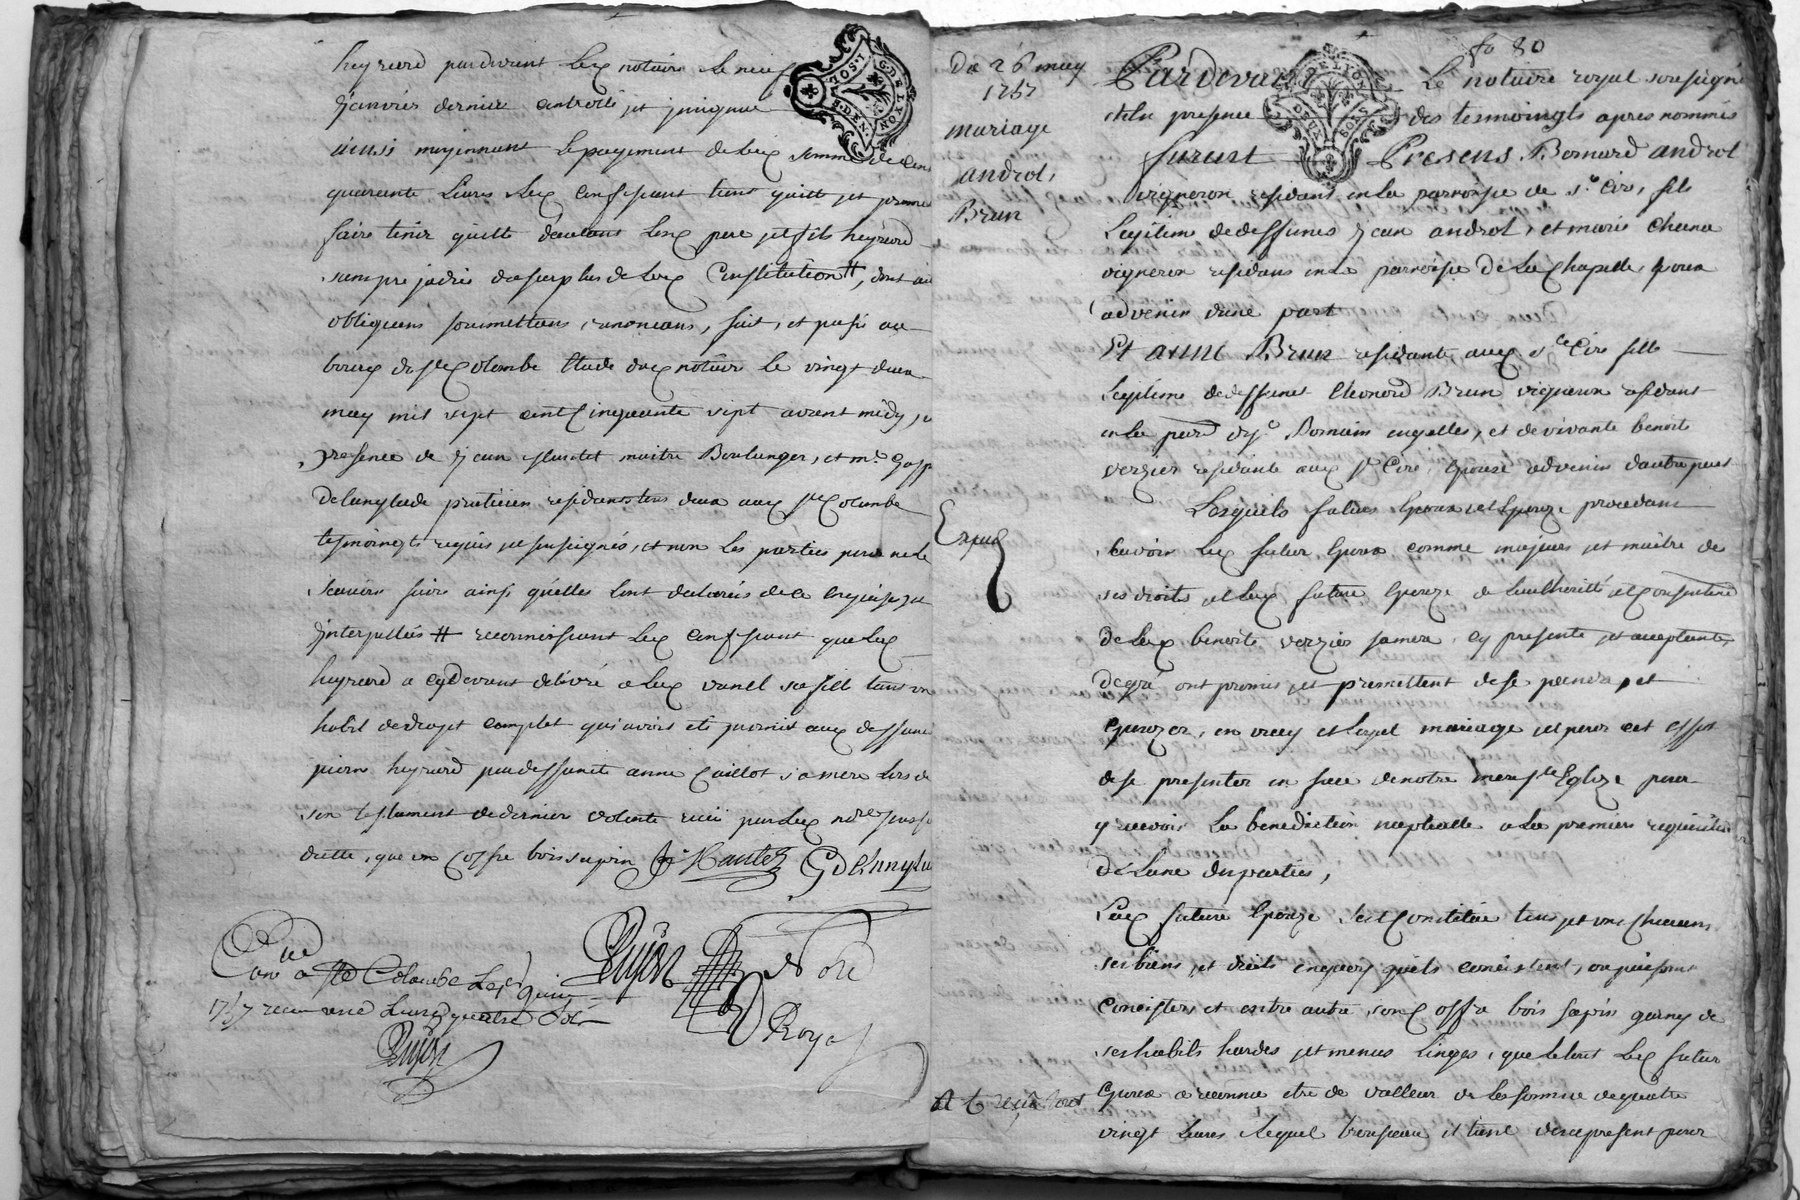 heyrierd pardevant Led notaire le neuf
janvier dernier controllé et insinué
ainsi moyennant le payement de Lad somme de cent
quarante Livres Led confessant tient quitte et promet
faire tenir quitte d'autant Lesd pere et fils heyrierd
sans prejudice du surplus de Lad Constitution #, dont
obligeans soumettans renoncans, fait, et passé au
bourg de Ste Colombe Etude dud notaire le vingt deux
may mil sept cent Cinquante sept avant midy,
presence de jean maitre Boulanger, et mr. Gasp
Delanglade praticien residants tous deux aud Ste Colombe
tesmoingts requis et sousignés, et non les parties pour ne le
scavoir faire ainsi qu'elles l'ont declarés de ce enquises et
interpellées # reconnoissant Led confessant que Led
heyrierd a cydevant délivré a Lad vanel sa fille
habit de drapt complet qui avoit eté promis aud deffunt
pierre heyrierd par deffunte anne Caillot sa mere lors de
son testament de dernier volonté recü par Led nore
dretté, que un Coffre bois sapin
GDelanglade
Con a Ste Colombe Le
1757 recu une Livre quatre sols
Guyot
Guyot Nore
Royal
fo 80
Du 26 may
1757
mariage
androl,
Brun
Expedi
Pardevant Le notaire royal sousigné
et En presence des tesmoingts apres nommés
furent Presens Bernard androl
vigneron residant en la parroisse de st Cire, fils
Legitime de deffunts jean androl, et marie Chana
vigneron residans en la parroisse de La Chapelle, Epoux
advenir dune part
Et anne Brun residante aud st Cire fille
Legitime de deffunt Eleonord Brun vigneron residant
en la par de st Romain en galles, et de vivante benoite
verzier residante aud st Cire, Epouse advenir d'autre part
Lesquels futurs Epoux et Epouze procedant
scavoir Led futur Epoux comme majeur et maitre de
ses droits et Lad future Epouze de Lauthorité et Consentement
de Lad benoite verzier sa mere, cy presente et acceptante,
de gré ont promis et promettent de se prendre et
Epouzer, en vray et Loyal mariage et pour cet effet
de se presenter en face de notre mere ste Eglize pour
y recevoir La benediction nuptialle a La premiere requisition
de Lune des parties,
Lad future Epouze sest Constitué tous et un Chacuns
ses biens et droits en quoy qu'ils consistent, ou puissent
concister et entre autre son Coffre bois sapin garny de
ses habits hardes et menus Linges, que le tout Led futur
Epoux a reconnu etre de valleur de La somme de quatre
vingt Livres Lequel trousseau il tient des a present pour